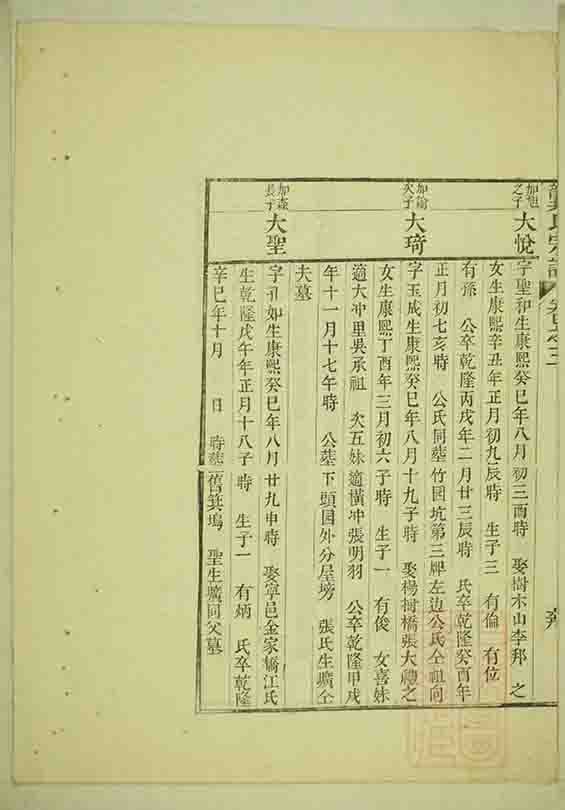 氏宗譜
如旭之子
大悅
字聖和生康熙癸巳年八月初三酉時 娶樹木山李邦之
女生康熙辛丑年正月初九辰時 生子三 有倫 有位
有孫 公卒乾隆丙戌年二月廿三辰時 氏卒乾隆癸酉年
正月初七亥時 公氏同墓竹囙坑第三牌左边公氏仝祖向
如諭次子
大琦
字玉成生康熙癸巳年八月十九子時 娶楊樹橋張大禮之
女生康熙丁酉年三月初六子時 生子一 有俊 女喜妹
適大冲里吳承祖 次五妹適橫冲張明羽 公卒乾隆甲戌
年十一月十七午時 公墓下頭囩外分屋塝 張氏生壙仝
夫墓
如森長子
大聖
字孔如生康熙癸巳年八月廿九申時 娶寧邑金家橋江氏
生乾隆戊午年正月十八子時 生子一 有炳 氏卒乾隆
辛巳年十月 日 時葬舊箕塢 聖生壙同父墓